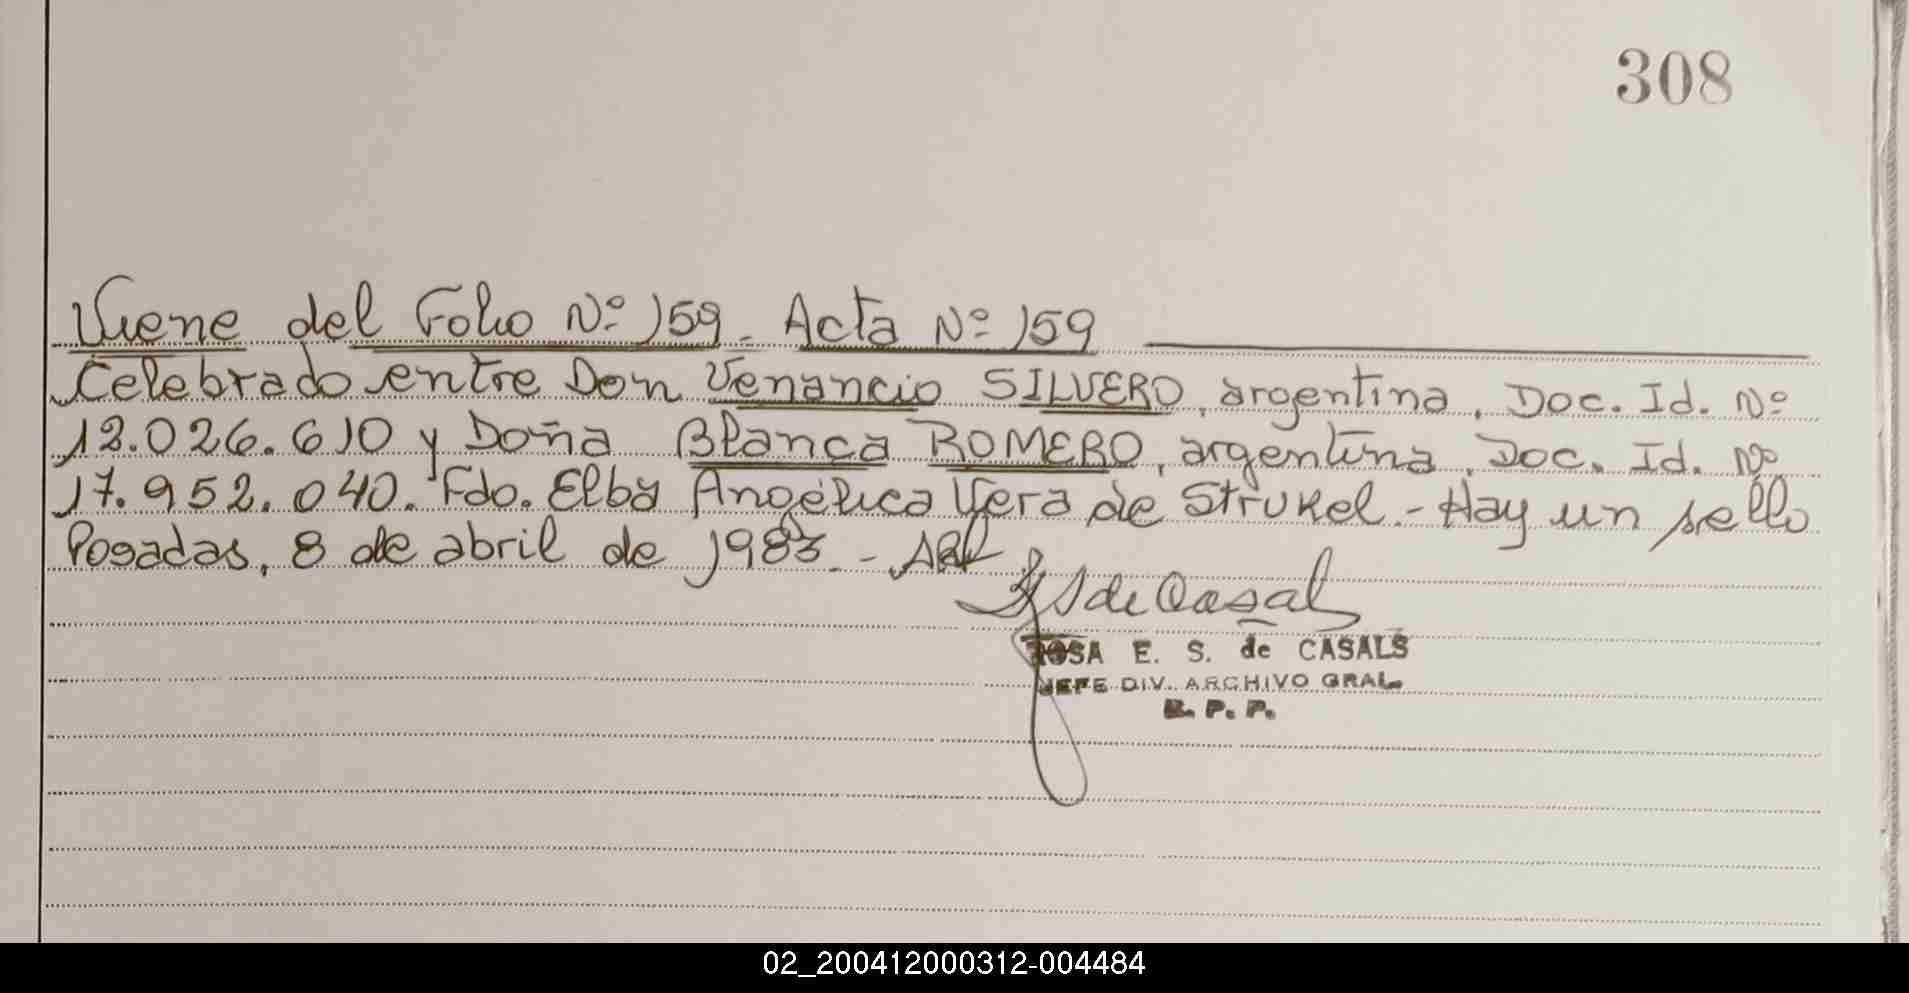 308
Viene del Folio Nº 159. Acta Nº 159
Celebrado entre Don Venancio SILVERO, argentina, Doc. Id. Nº
12.026.610 y Doña Blanca ROMERO, argentina, Doc. Id. Nº
17.952.040. Fdo. Elba Angélica Vera de Strukel.- Hay un sello
Posadas, 8 de abril de 1983.-
de Casal
ROSA E. S. de CASALS
JEFE DIV. ARCHIVO GRAL.
R. P. P.
02_200412000312-004484